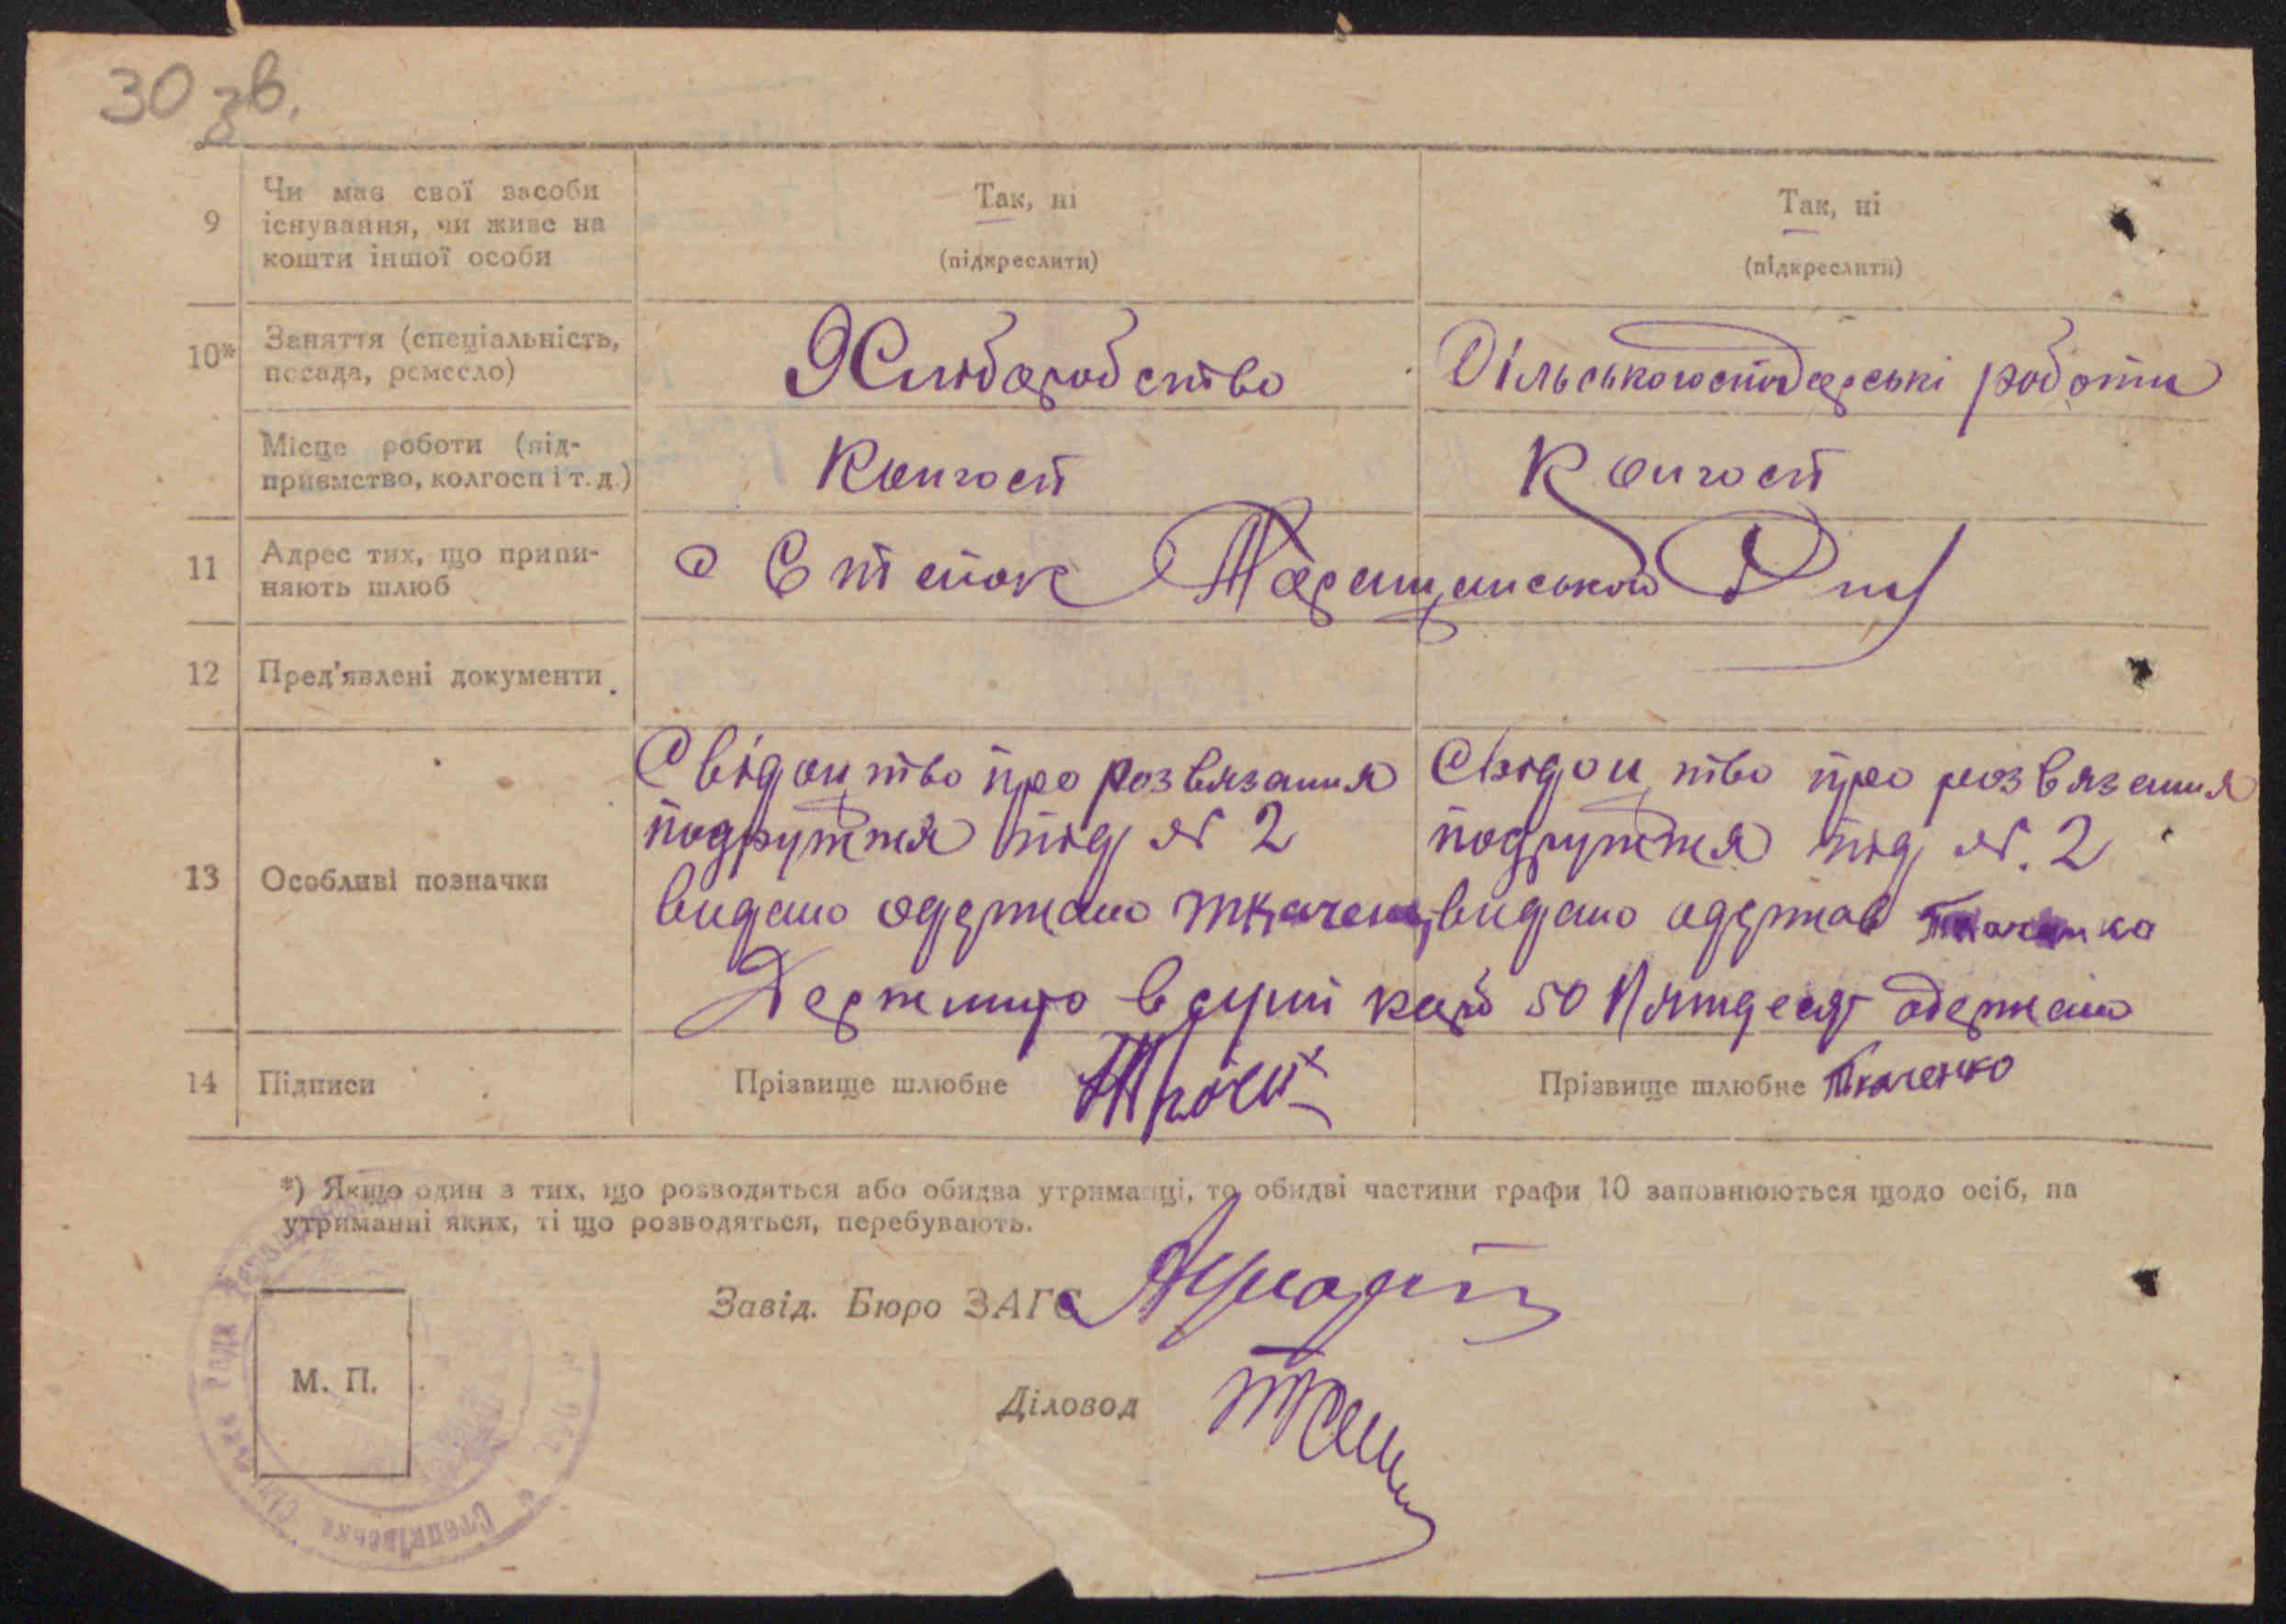 30 зв.
9 Чи має свої засоби існування, чи живе на кошти іншої особи
Так, ні
(підкреслити)
Так, ні
(підкреслити)
10* Заняття (спеціальність, посада, ремесло)
Хліборобство
Сільськогосподарські роботи
Місце роботи (підприємство, колгосп і т. д.)
Колгосп
Колгосп
11 Адрес тих, що припиняють шлюб
с Степок Таращанського
12 Пред'явлені документи
13 Особливі позначки
Свідоцтво про розвязання
подружжя під № 2
видано одержано
Свідоцтво про розвязання
подружжя під №. 2
видано одержав Ткаченко
Держмито в сумі карб 50 Пятдесят одержано
14 Підписи
Прізвище шлюбне
Прізвище шлюбне Ткаченко
*) Якщо один з тих, що розводяться або обидва утриманці, то обидві частини графи 10 заповнюються щодо осіб, на
утриманні яких, ті що розводяться, перебувають.
Завід. Бюро ЗАГС
М. П.
Діловод